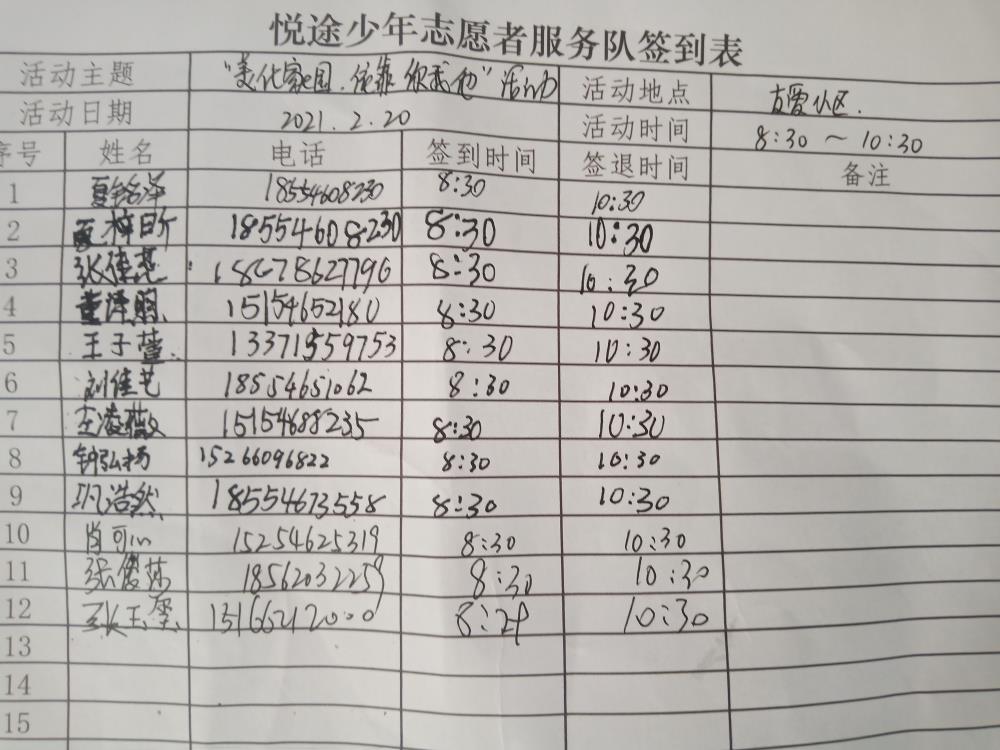 悦途少年志愿者服务队签到表
活动主题 "美化家园.依靠你我他"活动 活动地点 友爱小区.
活动日期 2021.2.20 活动时间 8:30～10:30
序号 姓名 电话 签到时间 签退时间 备注
1 18554608230 8:30 10:30
2 18554608230 8:30 10:30
3 18678627796 8:30 10:30
4 董泽煦 15154652180 8:30 10:30
5 王子萱. 13371559753 8:30 10:30
6 刘佳艺 18554651062 8:30 10:30
7 左凌薇 15154688235 8:30 10:30
8 钟弘扬 15266096822 8:30 10:30
9 巩浩然 18554673558 8:30 10:30
10 肖可 15254625319 8:30 10:30
11 张俊 18562032259 8:30 10:30
12 张玉 15166212000 8:29 10:30
13
14
15